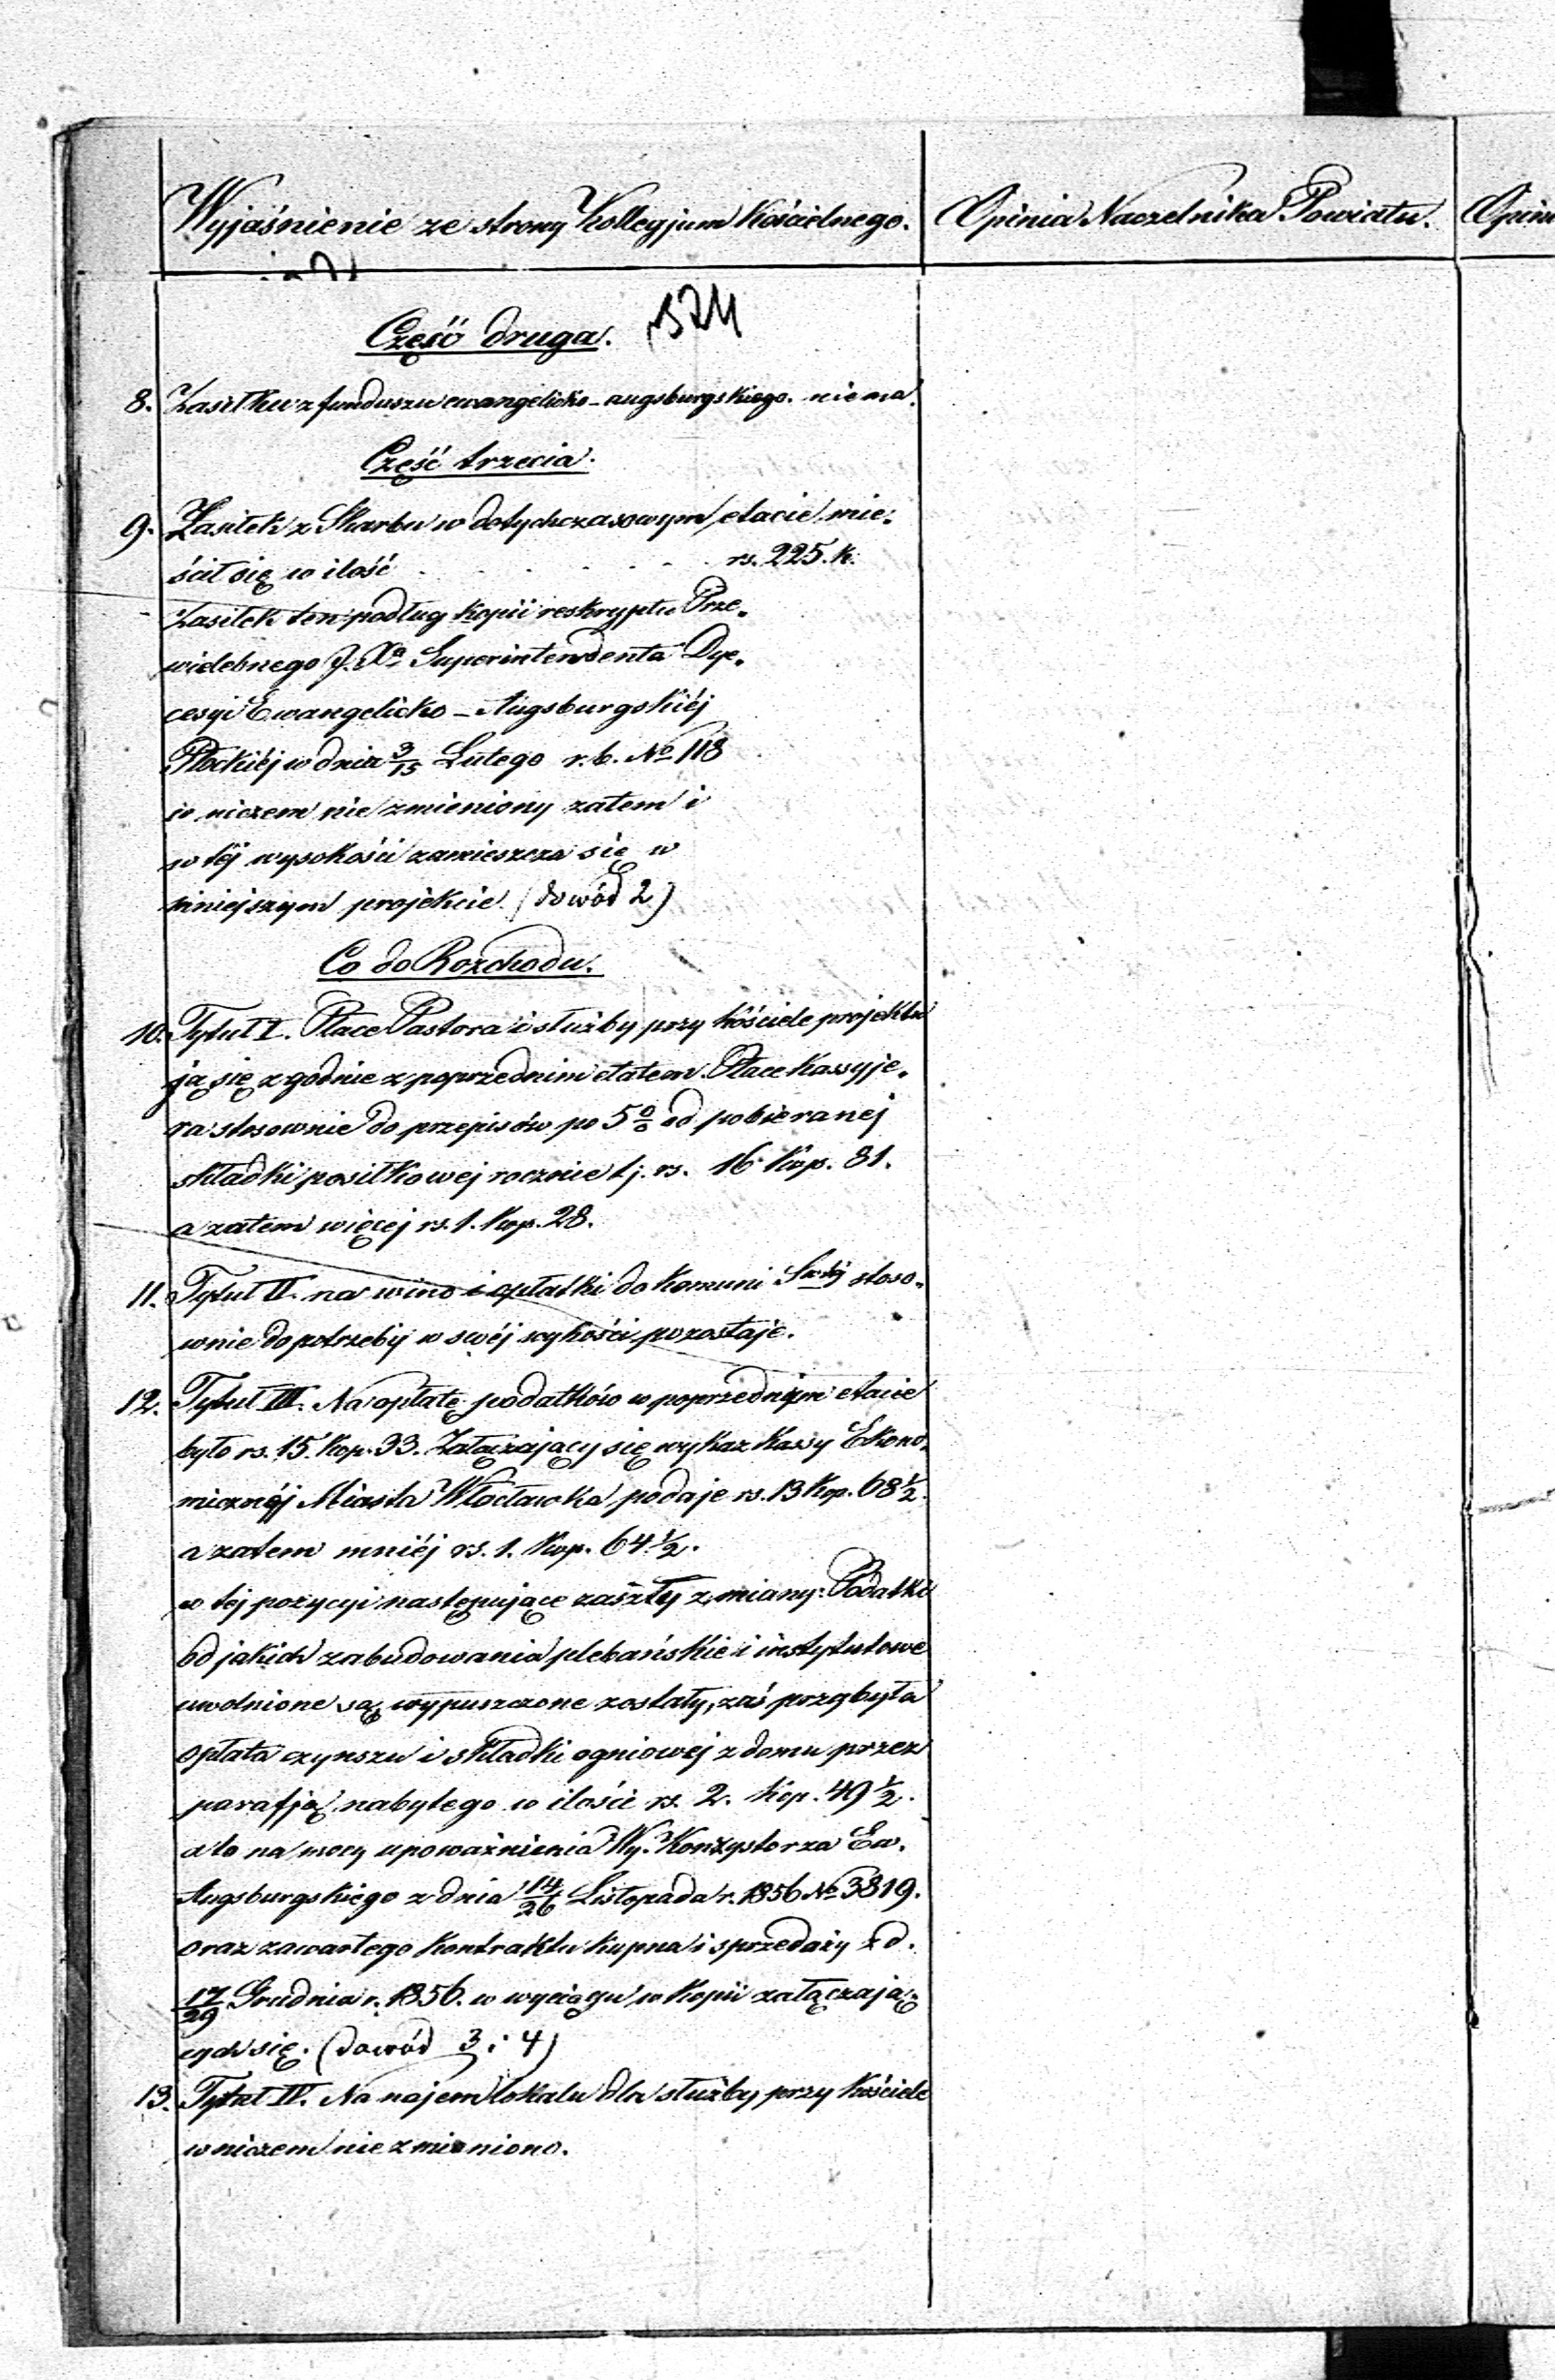 Wyjaśnienie ze strony Kollegjum Kościelnego.
Opinia Naczelnika Powiatu.
Opin
Część druga.
8. Zasiłku z funduszu ewangelicko-augsburgskiego niema.
Część trzecia.
9. Zasiłek z Skarbu w dotychczasowym etacie mie-
ścił się w ilość . . . . . . rs. 225. k.
Zasiłek ten podług kopii reskryptu Prze-
wielebnego J. Xa Superintendenta Dye-
cesyi Ewangelicko-Augsburgskiéj
Płockiéj w dniu 3/15 Lutego r. b. No 118
w niczem nie zmieniony zatem i
w téj wysokości zamieszcza się w
niniejszym projekcie (dowód 2)
Co do Rozchodu.
10. Tytuł I. Płace Pastora i służby przy kościele projektu
ją się zgodnie z poprzednim etatem. Płace Kassyje-
ra stosownie do przepisów po 5% od pobieranej
składki posiłkowej rocznie t j. rs. 16 Kop. 81.
a zatem więcej rs. 1. Kop. 28.
11. Tytuł II. na wino i opłatki do Komuni Śwtéj stoso-
wnie do potrzeby w swéj wykości pozostaje.
12. Tytuł III. Na opłatę podatków w poprzednim etacie
było rs. 15. Kop. 33. Załączający się wykaz Kassy Ekono-
micznéj Miasta Włocławka podaje rs. 13 Kop. 68 1/2.
a zatem mniéj rs. 1. Kop. 64 1/2.
w téj pozycyi następujące zaszły zmiany: Podatki
od jakich zabudowania plebańskie i instytutowe
uwolnione są, wypuszczone zostały, zaś przybyła
opłata czynszu i składki ogniowej z domu przez
parafją nabytego w ilości rs. 2. Kop. 49 1/2.
a to na mocy upoważnienia Wy. Konzystorza Ew.
Augsburgskiego z dnia 14/26 Listopada r. 1856 No 3819.
oraz zawartego Kontraktu kupna i sprzedaży z d.
17/29 Grudnia r. 1856. w wyciągu w Kopii załączają-
cych się. (dowód 3 i 4)
13. Tytuł IV. Na najem lokalu dla służby przy kościele
w niczem nie zmieniono.